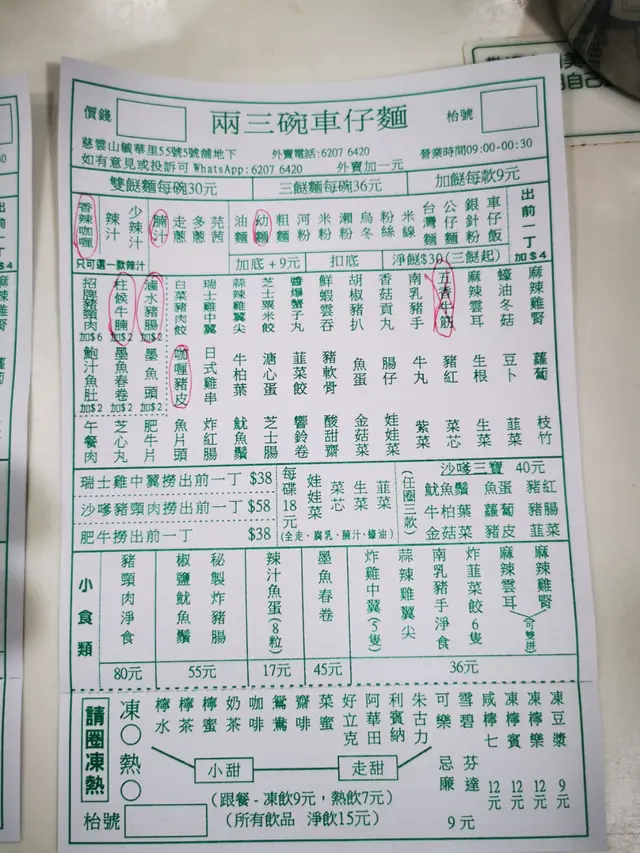 價錢
兩三碗車仔麵
枱號
慈雲山毓華里55號5號舖地下 外賣電話:6207 6420 營業時間09:00-00:30
如有意見或投訴可 WhatsApp:6207 6420 外賣加一元
雙餸麵每碗30元 三餸麵每碗36元 加餸每款9元
香辣咖喱 辣汁 少辣汁 腩汁 走蔥 多蔥 走芫茜
油麵 幼麵 粗麵 河粉 米粉 瀨粉 烏冬 粉絲 米線 台灣麵 公仔麵 銀針粉 車仔飯
出前一丁 加$4
只可選一款辣汁 加底+9元 扣底 淨餸$30(三餸起)
招牌豬頸肉 加$6 柱侯牛腩 加$2 滷水豬腸 加$2 白菜豬肉餃 瑞士雞中翼 蒜辣雞翼尖 芝士粟米餃 醬爆蟹子丸 鮮蝦雲吞 胡椒豬扒 香菇貢丸 南乳豬手 五香牛筋 麻辣雲耳 蠔油冬菇 麻辣雞腎
鮑汁魚肚 加$2 墨魚春卷 加$2 墨魚頭 加$2 咖喱豬皮 日式雞串 牛柏葉 溏心蛋 韮菜餃 豬軟骨 魚蛋 腸仔 牛丸 豬紅 生根 豆卜 蘿蔔
午餐肉 芝心丸 肥牛片 魚片頭 炸紅腸 魷魚鬚 芝士腸 響鈴卷 酸甜齋 金菇菜 娃娃菜 紫菜 菜芯 生菜 韮菜 枝竹
瑞士雞中翼撈出前一丁 $38
沙嗲豬頸肉撈出前一丁 $58
肥牛撈出前一丁 $38
每碟18元 娃娃菜 菜芯 生菜 韮菜
(全走、腐乳、腩汁、蠔油)
(任圈三款) 沙嗲三寶 40元
魷魚鬚 魚蛋 豬紅
牛柏葉 蘿蔔 豬腸
金菇菜 豬皮 韮菜
小食類
豬頸肉淨食 椒鹽魷魚鬚 秘製炸豬腸 辣汁魚蛋(8粒) 墨魚春卷 炸雞中翼(5隻) 蒜辣雞翼尖 南乳豬手淨食 炸韮菜餃6隻 麻辣雲耳 麻辣雞腎
可雙拼
80元 55元 17元 45元 36元
請圈凍熱
凍○ 熱○
檸水 檸茶 檸蜜 奶茶 咖啡 鴛鴦 齋啡 菜蜜 好立克 阿華田 利賓納 朱古力 可樂 雪碧 忌廉 芬達 9元
咸檸七 12元 凍檸賓 12元 凍檸樂 12元 凍豆漿 9元
小甜 走甜
(跟餐 - 凍飲9元，熱飲7元)
(所有飲品 淨飲15元)
枱號